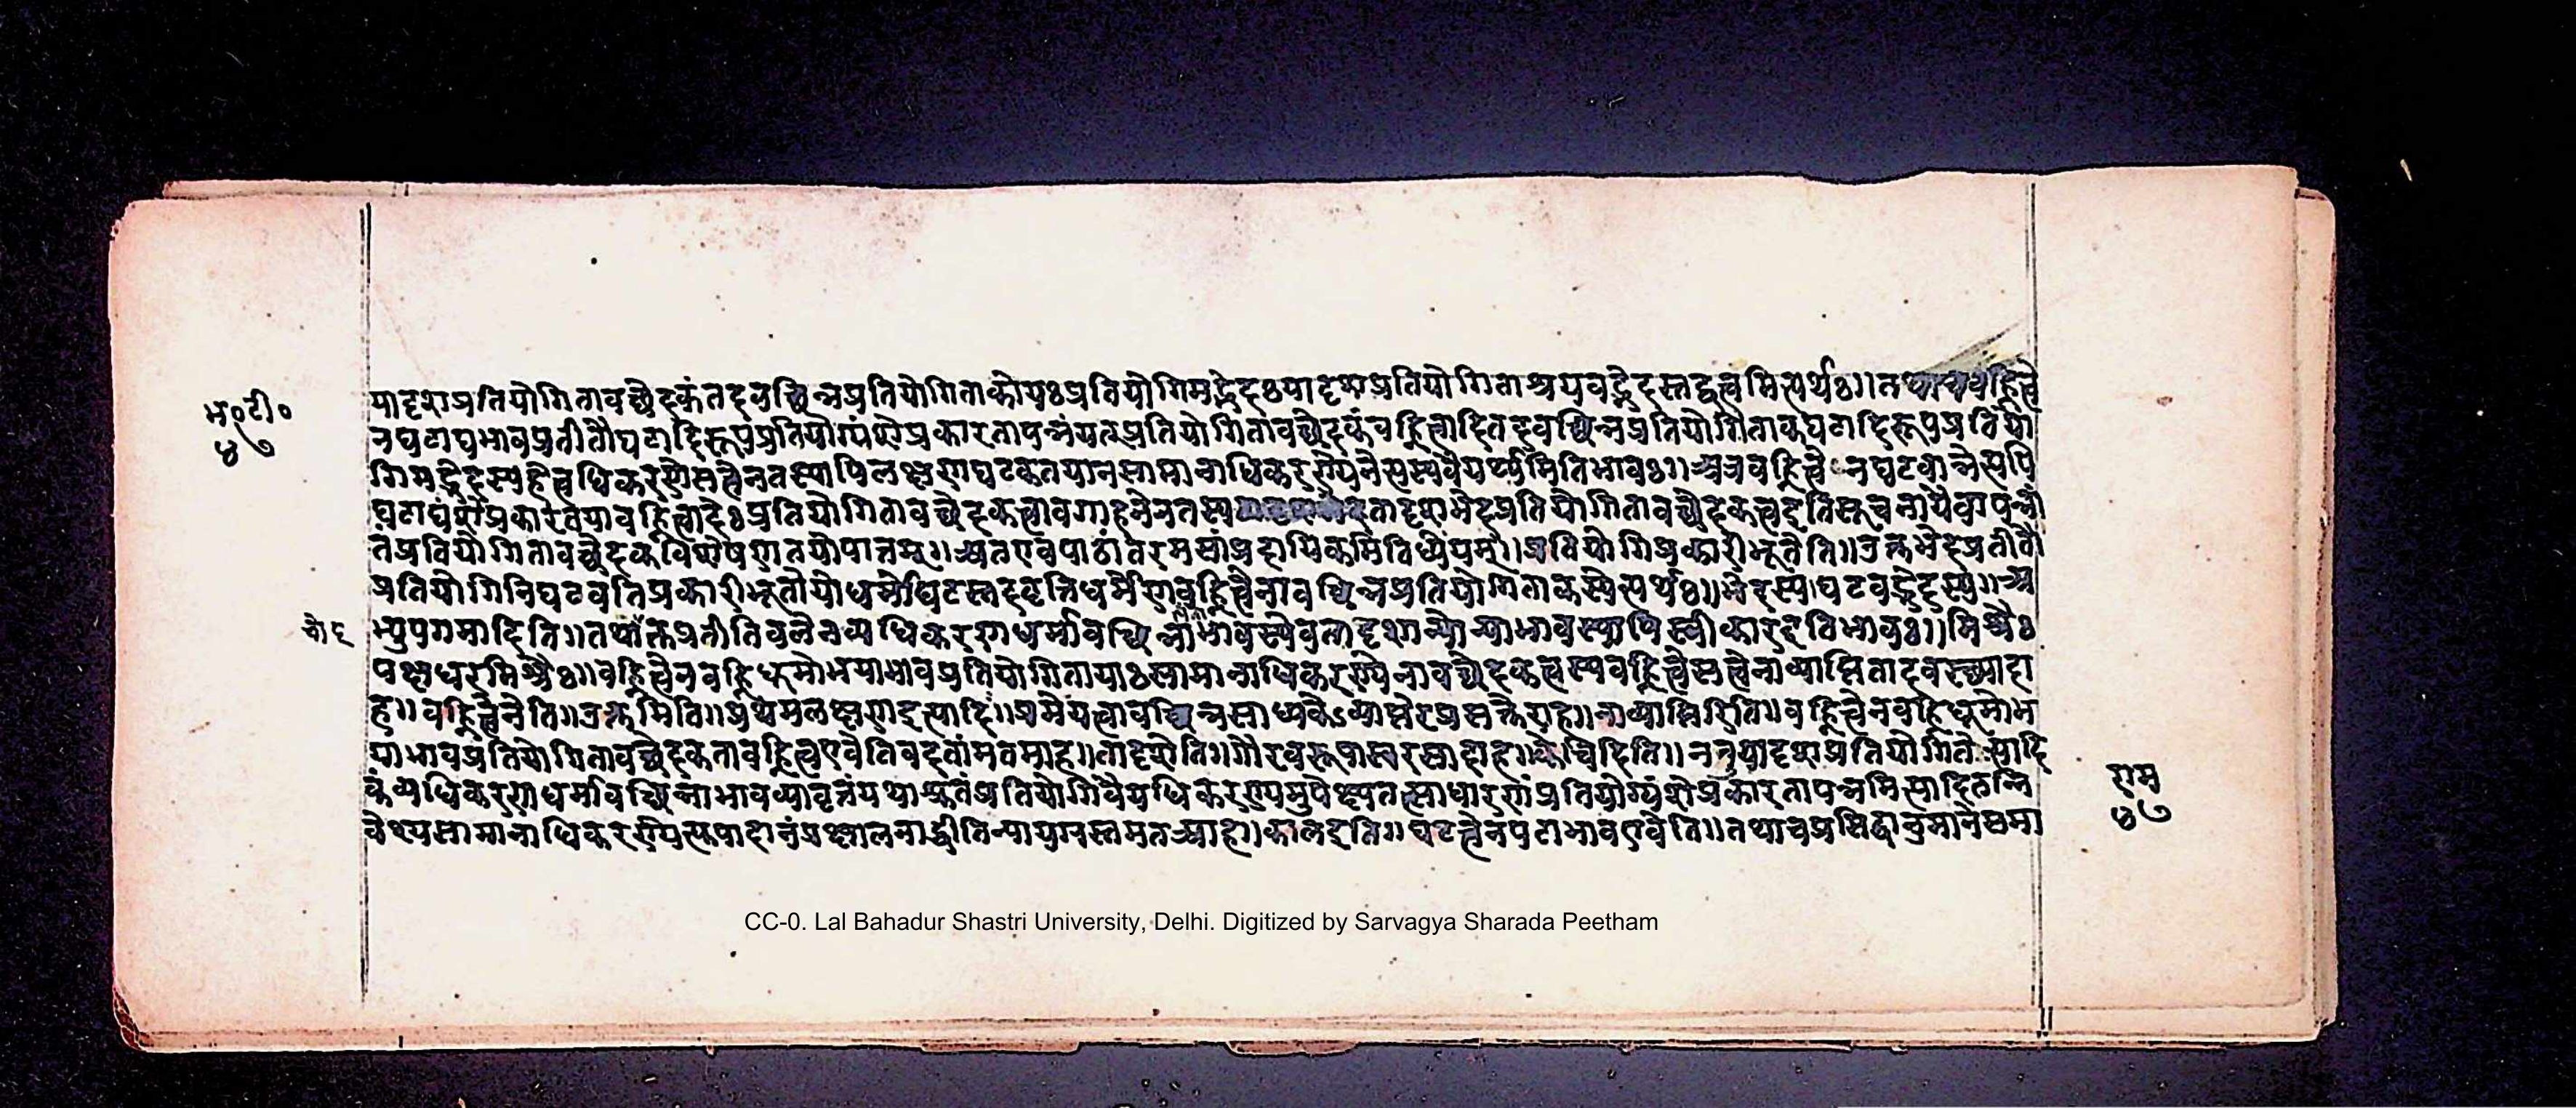 भ॰टी॰
४७
यादृशप्रतियोगितावच्छेदकं तदवच्छिन्नप्रतियोगिताको यः प्रतियोगिमद्भेदः यादृशप्रतियोगिताश्रयवद्भेदस्तद्वत्त्वमित्यर्थः॥ तथाच वह्नित्वे
न घटाद्यभावप्रतीतौ घटादिरूपप्रतियोग्यंशे प्रकारतापन्नं यत्प्रतियोगितावच्छेदकं वह्नित्वादि तदवच्छिन्नप्रतियोगिताकघटादिरूपप्रतियो
गिमद्भेदस्य हेत्वधिकरणे सत्त्वेन तस्यापि लक्षणघटकतया न सामानाधिकरण्येनेत्यस्य वैयर्थ्यमिति भावः॥ अत्र वह्नित्वेन घटवान्नेत्यपि
घटाद्यंशे प्रकारतया वह्नित्वादेः प्रतियोगितावच्छेदकत्वावगाहनेन तस्य तादृशभेदप्रतियोगितावच्छेदकत्व इति सूचनायैवापन्नां
तं प्रतियोगितावच्छेदकविशेषणतयोपात्तम्॥ अतएव पाठांतरमसांप्रदायिकमिति ध्येयम्॥ प्रतियोगिप्रकारीभूतेति॥ उक्तभेदप्रतीतौ
प्रतियोगिनि घटवति प्रकारीभूतो यो धर्मो घटस्तदवृत्तिधर्मेण वह्नित्वेनावच्छिन्नप्रतियोगिताकस्येत्यर्थः॥ भेदस्य॥ घटवद्भेदस्य॥ अ
भ्युपगमादिति॥ तथोक्तप्रतीतिबलेन व्यधिकरणधर्मावच्छिन्नाभावस्येव तादृशान्योन्याभावस्यापि स्वीकारादिति भावः॥ मिश्रैः
पक्षधरमिश्रैः॥ वह्नित्वेन वह्निधूमोभयाभावप्रतियोगितायाः सामानाधिकरण्येनावच्छेदकत्वस्य वह्नित्वे सत्त्वेनाव्याप्तितादवस्थ्यमाशं
ह॥ वह्नित्वेनेति॥ उक्तमिति॥ प्रथमलक्षण इत्यादि॥ प्रमेयत्वावच्छिन्नसाध्यकेऽव्याप्तेरप्रसक्तेराह॥ नाव्याप्तिरिति॥ वह्नित्वेन वह्निधूमोभ
याभावप्रतियोगितावच्छेदकता वह्नित्व एवेति वदतां मतमाह॥ तादृशेति॥ गौरवरूपास्वरसादाह॥ केचिदिति॥ ननु यादृशप्रतियोगितेत्यादि
व्यधिकरणधर्मावच्छिन्नाभावव्यावृत्तं यथाश्रुतं प्रतियोगिवैयधिकरण्यमुपेक्ष्य तत्साधारणं प्रतियोग्यंशे प्रकारतापन्नमित्यादि
वेश्य सामानाधिकरण्येत्यस्योपादानं प्रक्षालनाद्धीति न्यायग्रस्तमत आह॥ काल इति॥ घटत्वेन पटाभाव एवेति॥ तथाच प्रसिद्धानुमाने समा
राम
४७
CC-0. Lal Bahadur Shastri University, Delhi. Digitized by Sarvagya Sharada Peetham